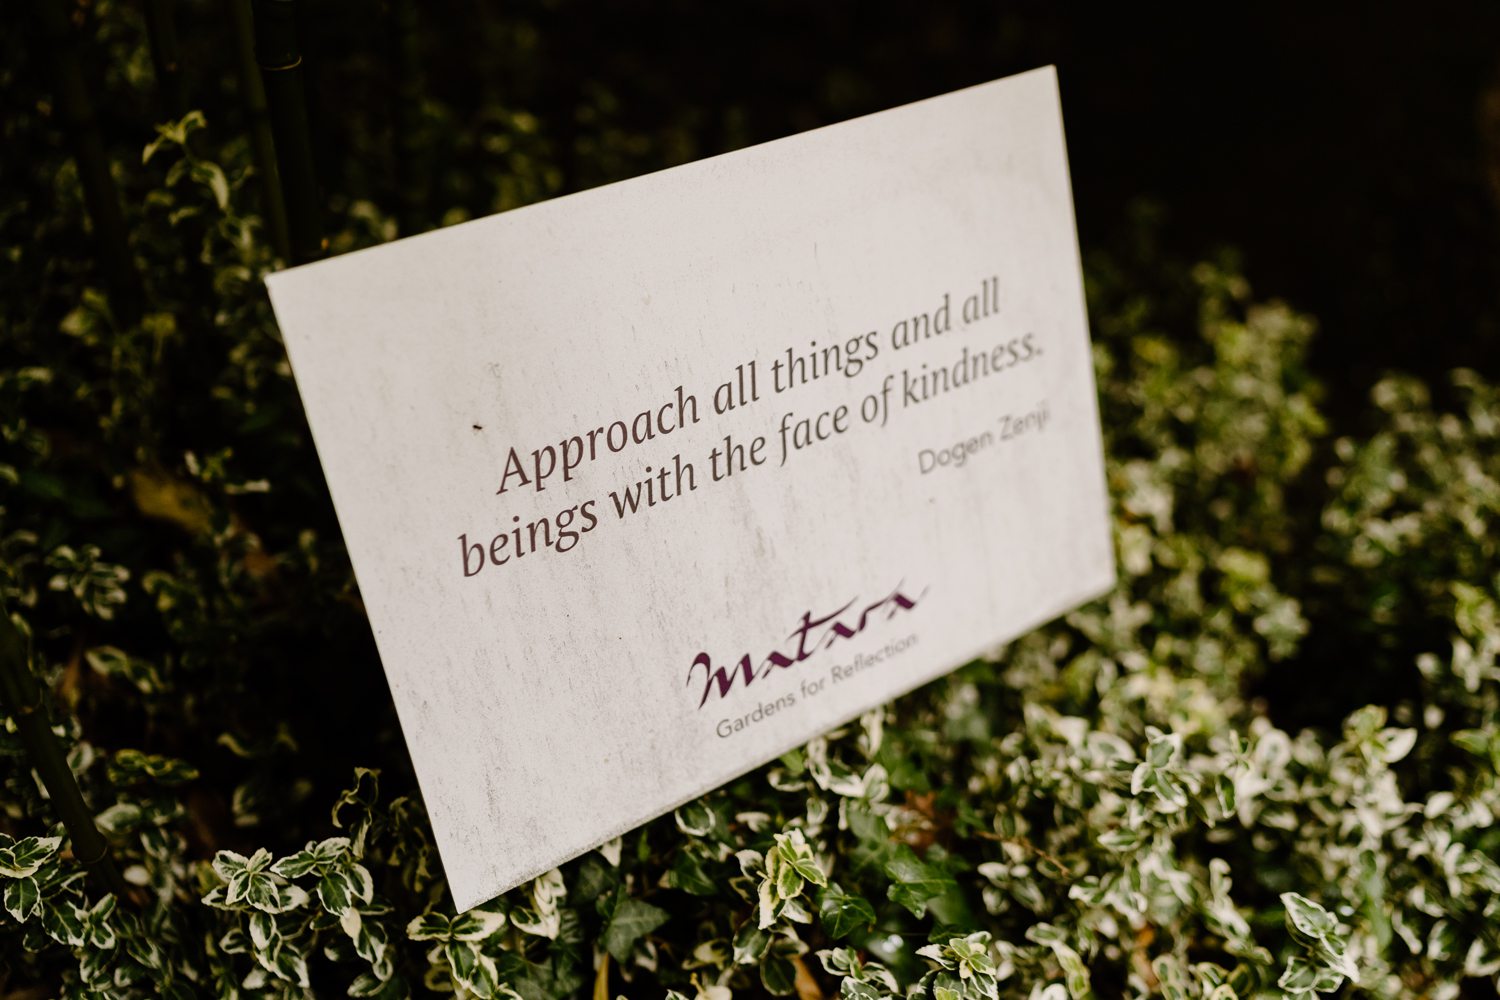 Approach all things and all
beings with the face of kindness.
Dogen Zenji
Matara
Gardens for Reflection